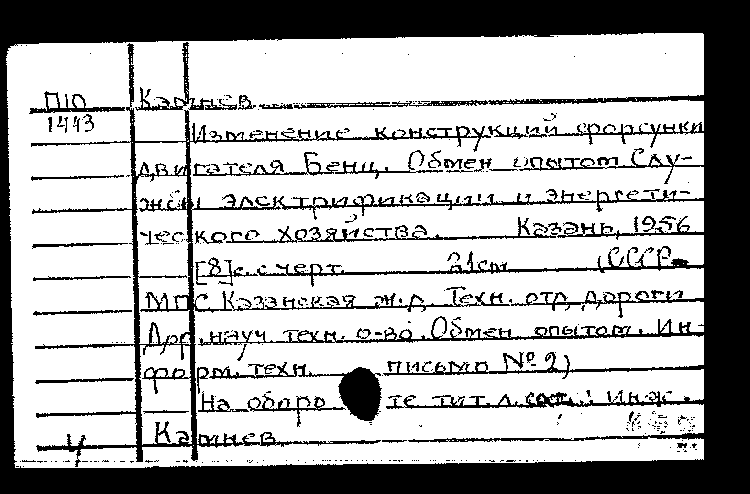 П10 Камнев
1443
Изменение конструкций форсунки
двигателя Бенц. Обмен опытом Слу-
жбы электрификации и энергети-
ческого хозяйства. Казань, 1956
[8]с. с черт. 21см (СССР
МПС. Казанская ж.д. Техн. отд. Дороги
Дор. науч. техн. о-во. Обмен опытом. Ин-
форм. техн. письмо № 2)
На оборо те тит. л. сост.: Инж.
Ч Камнев